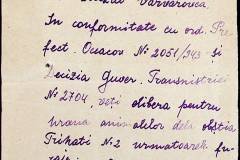 Varvarovca.
In conformitate cu ord. Pre-
fect. Oceacov No 2051/943 și
Decizia Guver. Transnistriei
No 2704, veți elibera pentru
hrana animalelor dela obștia
Trihati No 2 urmatoarele fu-